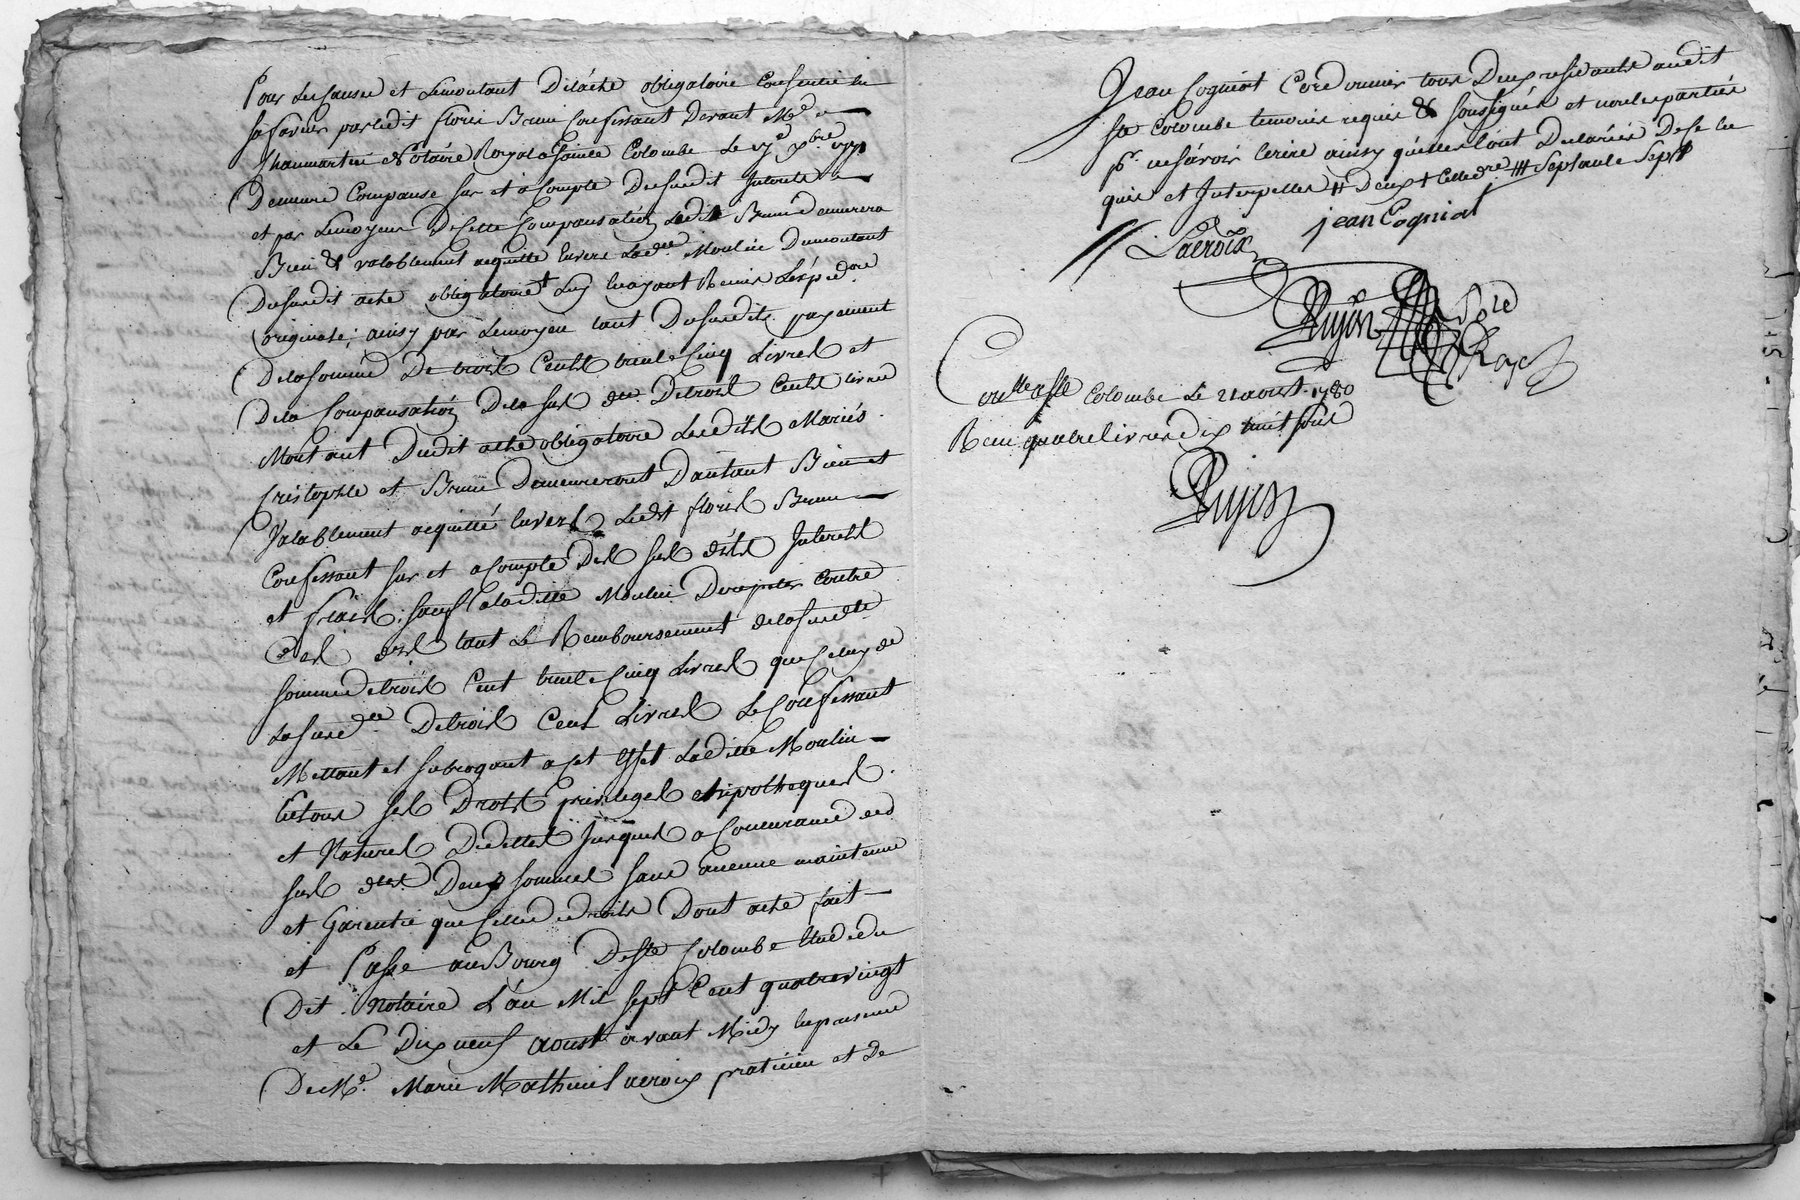 Pour Les causes et Lemontant Delacte obligatoire Consentie en
sa faveur parledit fleurie Brun Confessant Devant Me
notaire Royal a sainte Colombe Le
Demeure Compansé sur et a Compte Dusudit Interets
et par Lemoyen De Cette Compansation Ledit Brun demeurera
Bien & valablement acquitté Envers Lade. Moulin Dumontant
Dusudit acte obligatoire Luy en ayant Remis
originale; ainsy par Lemoyen tant Dusudit payement
Delasomme De trois Cents trente Cinq Livres et
Dela Compansation Dela sus dtte Detrois Cents Livres
Montant Dudit acte obligatoire Lesdits Mariés
Cristophle et Brun Demeureront Dautant Bien et
Valablement acquitté Envers Ledit fleurie Brun
Confessant sur et a Compte Des sus dits Interets
et frais. sauf aladitte Moulin Derepeter Contre
tant Le Remboursement delasusdtte
somme detrois Cent trente Cinq Livres que Celuy de
Lasusdtte Detrois Cent Livres Le Confessant
Mettant et subrogeant a cet effet Laditte Moulin
En tous ses Droits privileges ethipotheques
et Natures Dedettes Jusques a Concurance des
sus dtes Deux sommes sans aucune maintenue
et Garentie que Celle de droits Dont acte fait
et Passé auBourg Deste Colombe Etude du
Dit notaire L'an Mil sept Cent quatrevingt
et Le Dix neuf aoust avant Midy En presence
De Me. Marie Mathieu Lacroix praticien et De
Jean Cogniat Cordonnier tous Deux residants audit
ste Colombe temoins requis & soussignés et nonlesparties
pr. nesavoir Ecrire ainsy quelles L'ont Declarées De ce en
quis et Interpellés # Deux + Cettedre # Septante Sept
Lacroix jean Cogniat
Pujon
Conllé a ste Colombe Le 21 aoust 1780
Recu quatre livres dix huit sous
Pujon